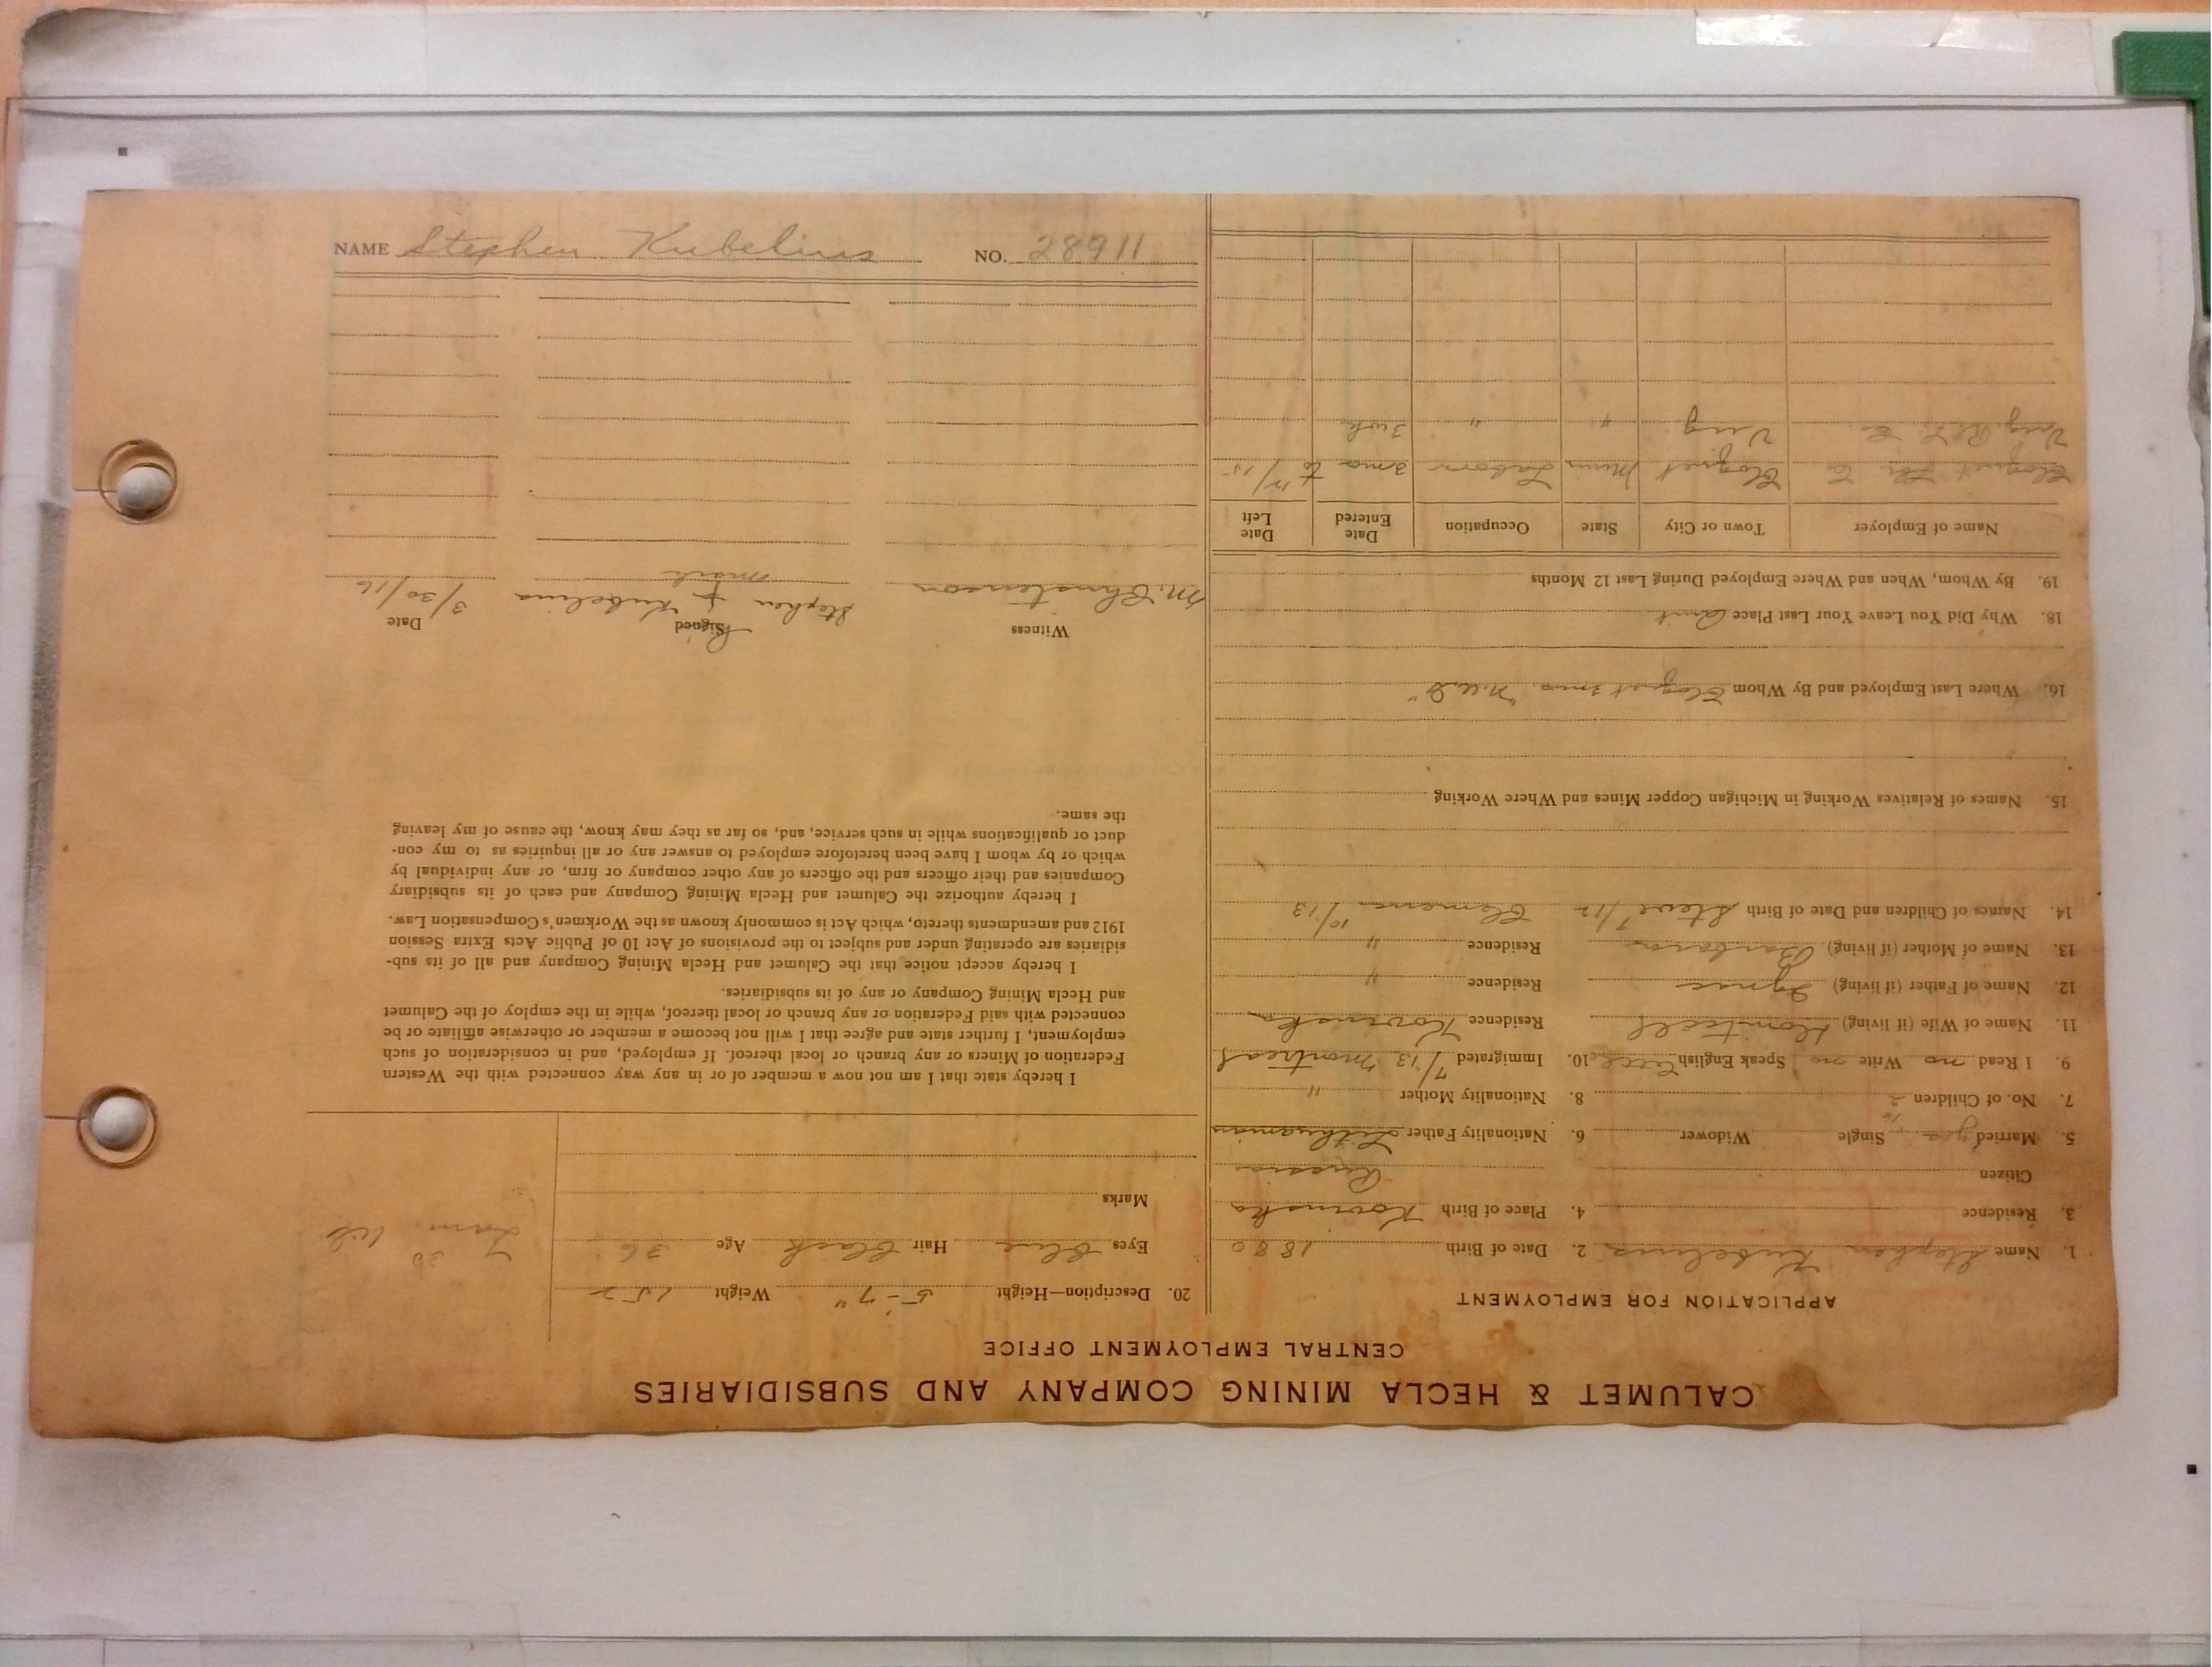 NAME Stephen Kubelius NO. 28911
CALUMET & HECLA MINING COMPANY AND SUBSIDIARIES
CENTRAL EMPLOYMENT OFFICE
APPLICATION FOR EMPLOYMENT
1. Name Stephen Kubelius 2. Date of Birth 1880
3. Residence 4. Place of Birth Kovnska
Citizen Russia
5. Married yes Single Widower 6. Nationality Father Lithuanian
7. No. of Children 2 8. Nationality Mother "
9. I Read no Write no Speak English little 10. Immigrated 7/13 Montreal
11. Name of Wife (if living) Residence Kovnska
12. Name of Father (if living) Ignac Residence "
13. Name of Mother (if living) Barbara Residence "
14. Names of Children and Date of Birth Steve 7/12 10/13
15. Names of Relatives Working in Michigan Copper Mines and Where Working
16. Where Last Employed and By Whom Cloquet Minn.
18. Why Did You Leave Your Last Place Quit
19. By Whom, When and Where Employed During Last 12 Months
Name of Employer Town or City State Occupation Date Entered Date Left
Cloquet Co. Cloquet Minn Labor 3 mo to
Virg. R. L. Co. Virg " " 3 wk "
20. Description—Height 5'-7" Weight 152
Eyes Blue Hair Black Age 36
Marks
I hereby state that I am not now a member of or in any way connected with the Western
Federation of Miners or any branch or local thereof. If employed, and in consideration of such
employment, I further state and agree that I will not become a member or otherwise affiliate or be
connected with said Federation or any branch or local thereof, while in the employ of the Calumet
and Hecla Mining Company or any of its subsidiaries.
I hereby accept notice that the Calumet and Hecla Mining Company and all of its sub-
sidiaries are operating under and subject to the provisions of Act 10 of Public Acts Extra Session
1912 and amendments thereto, which Act is commonly known as the Workmen's Compensation Law.
I hereby authorize the Calumet and Hecla Mining Company and each of its subsidiary
Companies and their officers and the officers of any other company or firm, or any individual by
which or by whom I have been heretofore employed to answer any or all inquiries as to my con-
duct or qualifications while in such service, and, so far as they may know, the cause of my leaving
the same.
Witness Signed Date
M. Christenson Stephen X Kubelius 3/30/16
mark